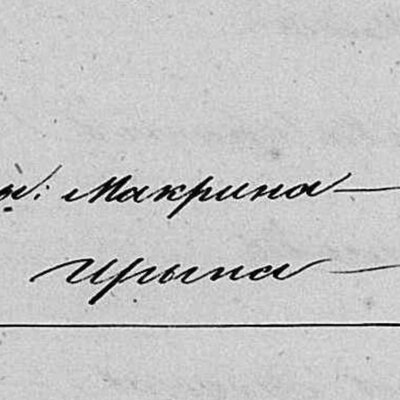 ы: Макрина —
Ирына —